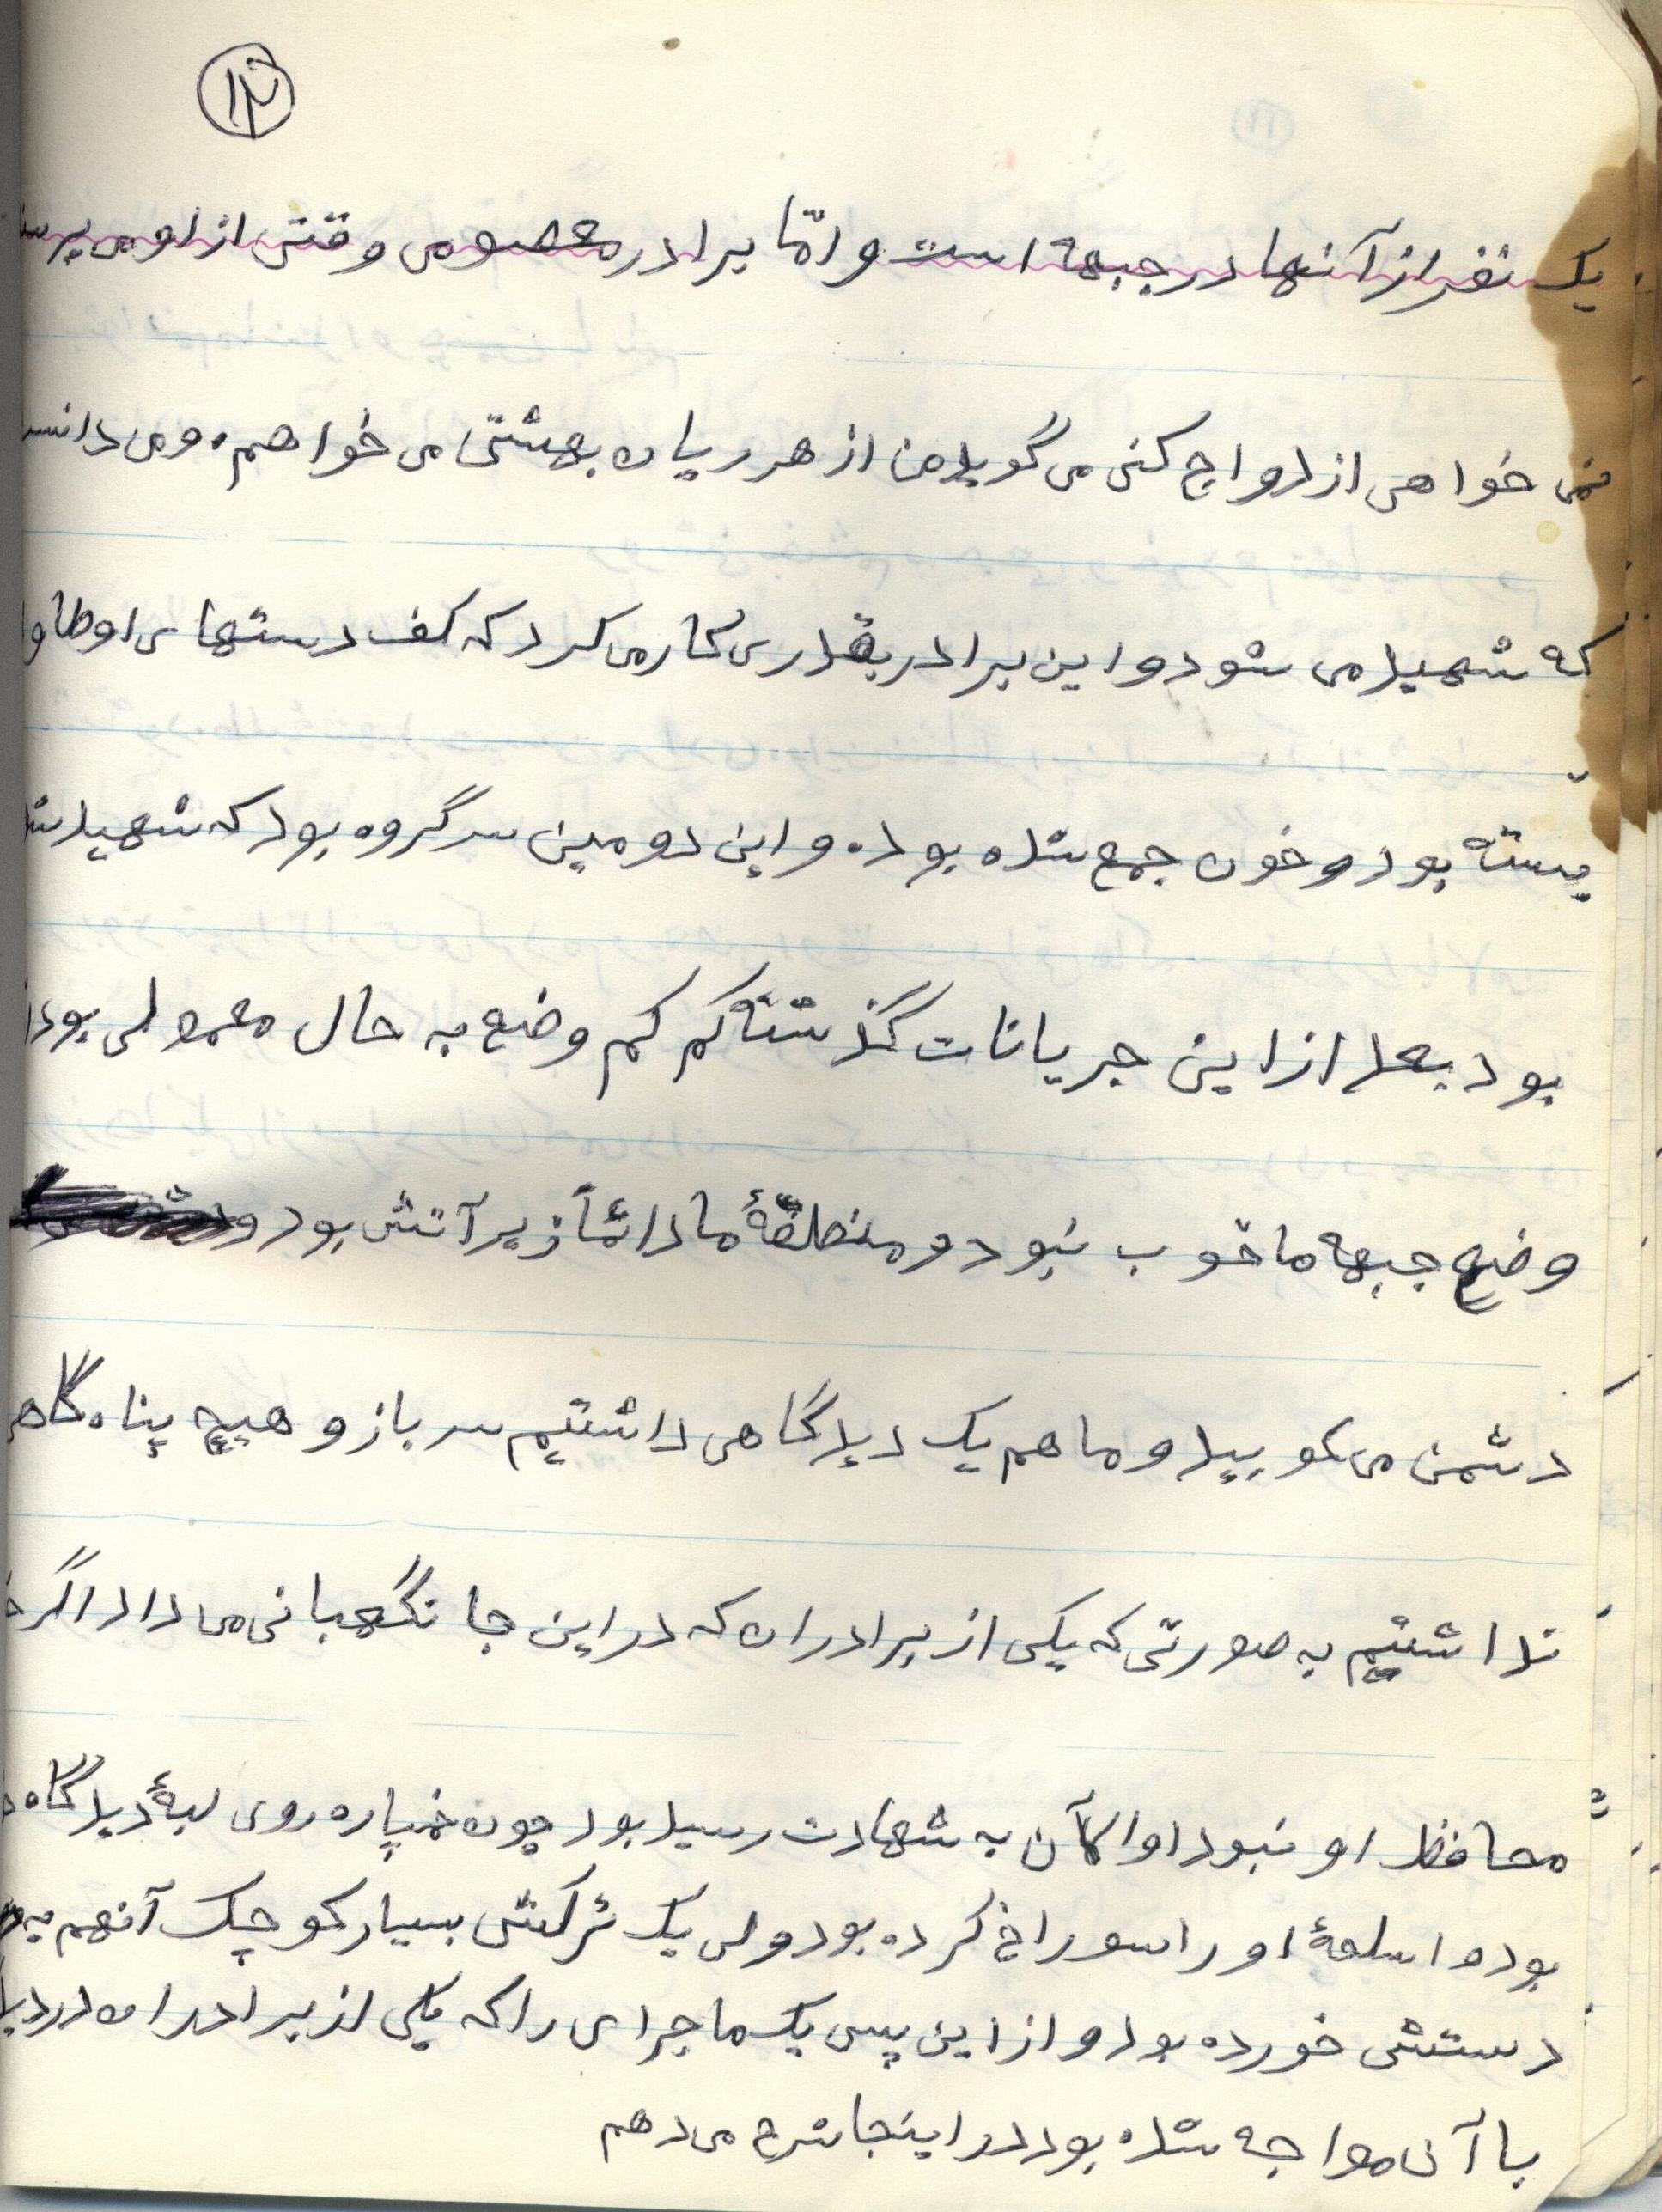 ۱۲
یک نفر از آنها در جبهه است و امّا برادر معصومی وقتی از او می پرسند
نمی خواهی ازدواج کنی می گوید من از هر ریان بهشتی می خواهم. و می دانست
که شهید می شود و این برادر بقدری کار می کرد که کف دستهای او طاول
بسته بود و خون جمع شده بود. و این دومین سرگروه بود که شهید شده
بود بعد از این جریانات گذشته کم کم وضع به حال معمولی بود
وضع جبهه ما خوب نبود و منطقۀ ما دائماً زیر آتش بود و
دشمن می کوبید و ما هم یک دیدگاهی داشتیم سرباز و هیچ پناه گاهی
نداشتیم به صورتی که یکی از برادران که در این جا نگهبانی می داد اگر
محافظ او نبود او الآن به شهادت رسید بود چون خمپاره روی لبۀ دیدگاه
بود و اسلحۀ او را سوراخ کرده بود ولی یک ترکش بسیار کوچک آنهم به
دستش خورده بود و از این پس یک ماجرای را که یکی از برادران در
با آن مواجه شده بود در اینجا شرح می دهم